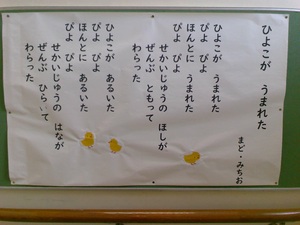 ひよこが　うまれた
まど・みちお
ひよこが　うまれた
ぴよ　ぴよ
ほんとに　うまれた
ぴよ　ぴよ
せかいじゅうの　ほしが
ぜんぶ　ともって
わらった
ひよこが　あるいた
ぴよ　ぴよ
ほんとに　あるいた
ぴよ　ぴよ
せかいじゅうの　はなが
ぜんぶ　ひらいて
わらった